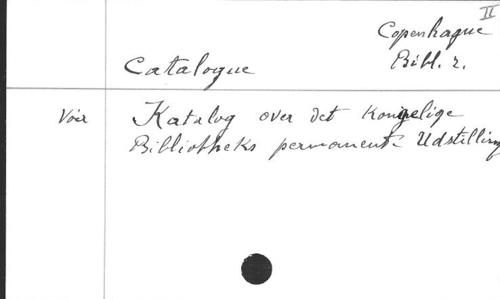 II
Copenhague
Bibl. r.
Catalogue
Voir Katalog over det kongelige
Bibliotheks permanent- Udstilling